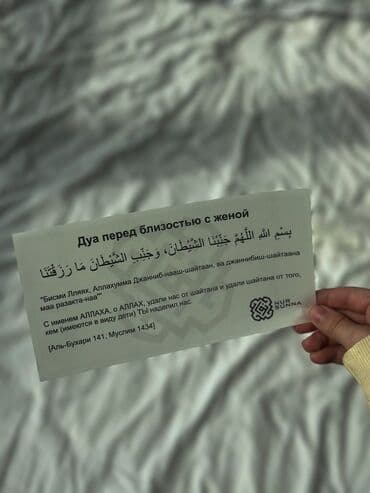 Дуа перед близостью с женой
بِسْمِ اللهِ اللَّهُمَّ جَنِّبْنَا الشَّيْطَانَ، وَجَنِّبِ الشَّيْطَانَ مَا رَزَقْتَنَا
"Бисми Лляях, Аллахумма Джанниб-нааш-шайтаан, ва джаннибиш-шайтаана
маа разакта-наа"
С именем АЛЛАХА, о АЛЛАХ, удали нас от шайтана и удали шайтана от того,
кем (имеются в виду дети) ТЫ наделил нас.
[Аль-Бухари 141, Муслим 1434]
NUR
SUNNA